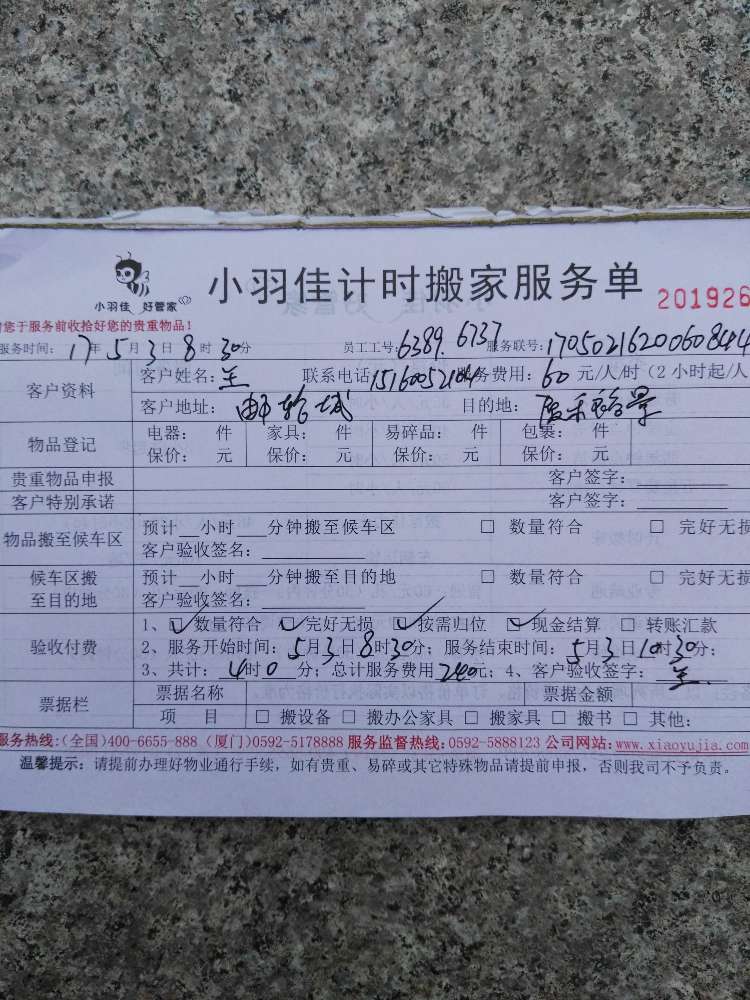 小羽佳 好管家
小羽佳计时搬家服务单 201926
您于服务前收拾好您的贵重物品！
服务时间：17年5月3日8时30分 员工工号：6389. 6737 服务联号：1705021620060844
客户资料
客户姓名：兰 联系电话 15160052104 服务费用：60 元/人/时（2小时起/人
客户地址：邮轮城 目的地：
物品登记
电器： 件 家具： 件 易碎品： 件 包裹： 件
保价： 元 保价： 元 保价： 元 保价： 元
贵重物品申报 客户签字：
客户特别承诺 客户签字：
物品搬至候车区
预计__小时___分钟搬至候车区 □ 数量符合 □ 完好无损
客户验收签名：
候车区搬至目的地
预计__小时___分钟搬至目的地 □ 数量符合 □ 完好无损
客户验收签名：
验收付费
1、☑数量符合 ☑完好无损 ☑按需归位 ☑现金结算 □ 转账汇款
2、服务开始时间：5月3日8时30分；服务结束时间：5月3日10时30分；
3、共计：4时0分；总计服务费用240元；4、客户验收签字：兰
票据栏
票据名称 票据金额
项 目 □ 搬设备 □ 搬办公家具 □ 搬家具 □ 搬书 □ 其他：
服务热线：(全国)400-6655-888 (厦门)0592-5178888 服务监督热线：0592-5888123 公司网站：www.xiaoyujia.com
温馨提示：请提前办理好物业通行手续，如有贵重、易碎或其它特殊物品请提前申报，否则我司不予负责。